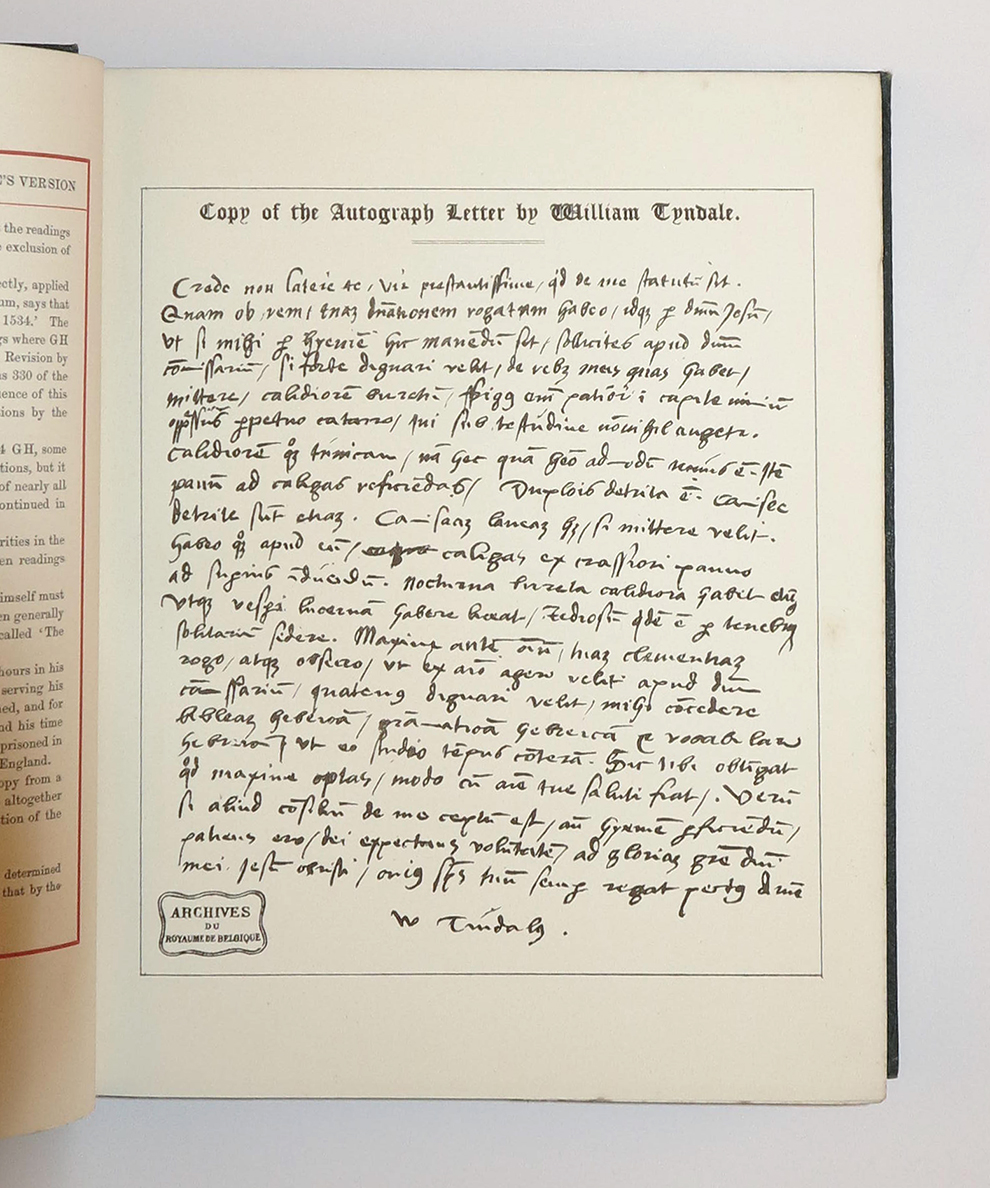 'S VERSION
the readings
exclusion of
ectly, applied
um, says that
1534.' The
gs where GH
Revision by
s 330 of the
ence of this
sions by the
4 GH, some
tions, but it
of nearly all
ontinued in
rities in the
en readings
imself must
en generally
called 'The
hours in his
serving his
ned, and for
nd his time
prisoned in
England.
opy from a
altogether
tion of the
determined
that by the
Copy of the Autograph Letter by William Tyndale.
Credo non latere te, vir prestantissime, qd de me statutū sit.
Quam ob rem, tuaꝫ dn̄ationem rogatum habeo, idqꝫ ꝑ dn̄m Jesū,
vt si mihi ꝑ hyemē hic manēdū sit, sollicites apud dn̄m
cōmissariū, si forte dignari velit, de rebꝫ meis quas habet,
mittere, calidiorē birethū, frigꝰ em̄ patior ī capite nimiū
oppressus ꝑpetuo catarro, qui sub testitudine nōnihil augetr.
calidiorē qꝫ tunicam, nā hec quā heō admodū tenuis ē. Itē
pannū ad caligas reficiendas, Duplois detrita ē. Camisee
detrite sūt etiaꝫ. Camisaaꝫ laneaꝫ hꝫ, si mittere velit.
habeo qꝫ apud eū, caligas ex crassiori panno
ad superius īduēdū. nocturna bireta calidiora habet etiā
vtqꝫ vesperi lucernā habere liceat, Tediosū qdē ē ꝑ tenebras
solitariū sedere. Maxime autē oīm, tuaꝫ clementiaꝫ
rogo, atqꝫ obsecro, vt ex aīo agere velit apud dn̄m
cōmissariū, quatenꝰ dignari velit, mihi cōcedere
bibleaꝫ hebreicā, grāmaticā hebreicā et vocabularium
hebreicū, vt eo studio tēpus cōterā. Sic tibi obtingat
qd maxime optas, modo cū aīe tue salute fiat,. Verū
si aliud cōsiliū de me ceptū est, an̄ hyemē ꝑficiēdū,
patiens ero, dei expectans volūtatē, ad gloriaꝫ grē dn̄i
mei Jesu christi, cuiꝰ sp̄s tuū semꝑ regat pectꝰ Amē
W Tindalꝰ.
ARCHIVES
DU
ROYAUME DE BELGIQUE